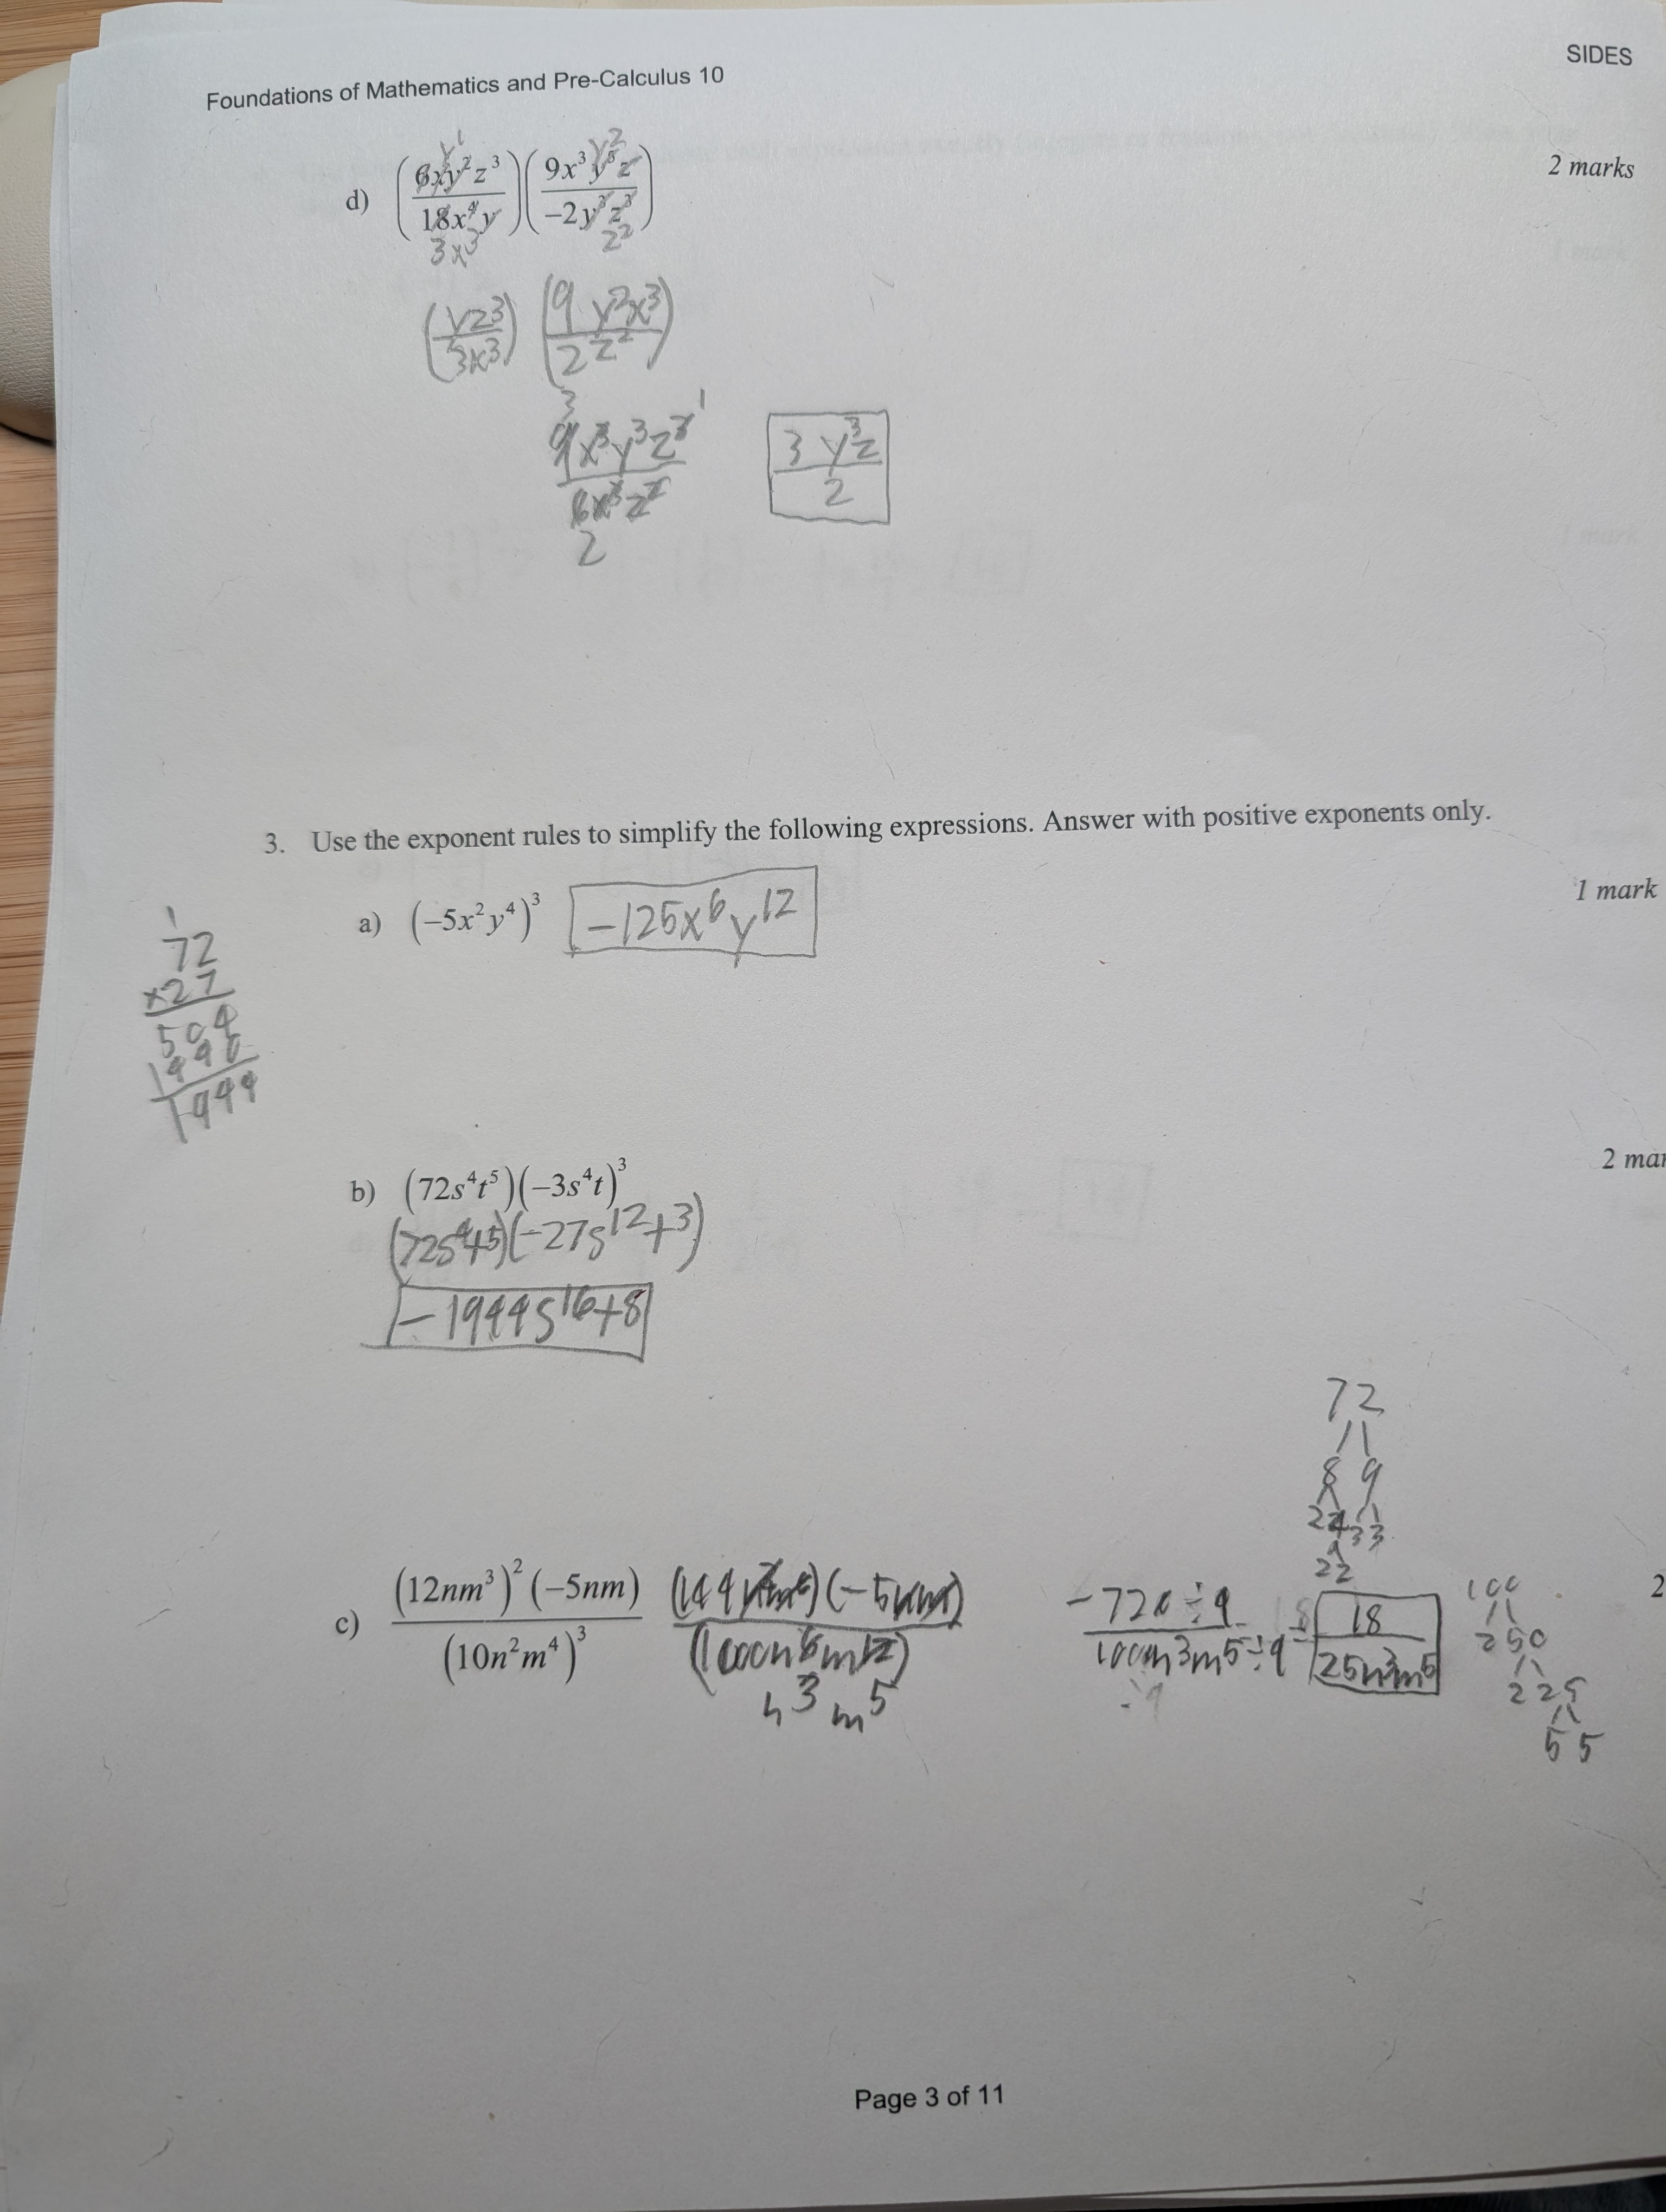 Foundations of Mathematics and Pre-Calculus 10
SIDES
d) (6xy²z³ / 18x⁴y)(9x³y⁵z / −2y³z³)
2 marks
y¹ y²
3x³ z²
(yz³ / 3x³) (9 y²x³ / 2 z²)
3 1
9x³y³z³ / 6x³z²
2
3 y³z / 2
3. Use the exponent rules to simplify the following expressions. Answer with positive exponents only.
a) (−5x²y⁴)³ −125x⁶y¹²
1 mark
1
72
×27
504
1440
1944
b) (72s⁴t⁵)(−3s⁴t)³
2 mar
(72s⁴t⁵)(−27s¹²t³)
−1944s¹⁶t⁸
72
8 9
2 4 3 3
2 2
c) (12nm³)²(−5nm) / (10n²m⁴)³ (144n²m⁶)(−5nm) / (1000n⁶m¹²)
n³m⁵
−720÷9 / 100n³m⁵÷9 = 18 / 25n³m⁵
÷9
2
100
2 50
2 25
5 5
Page 3 of 11